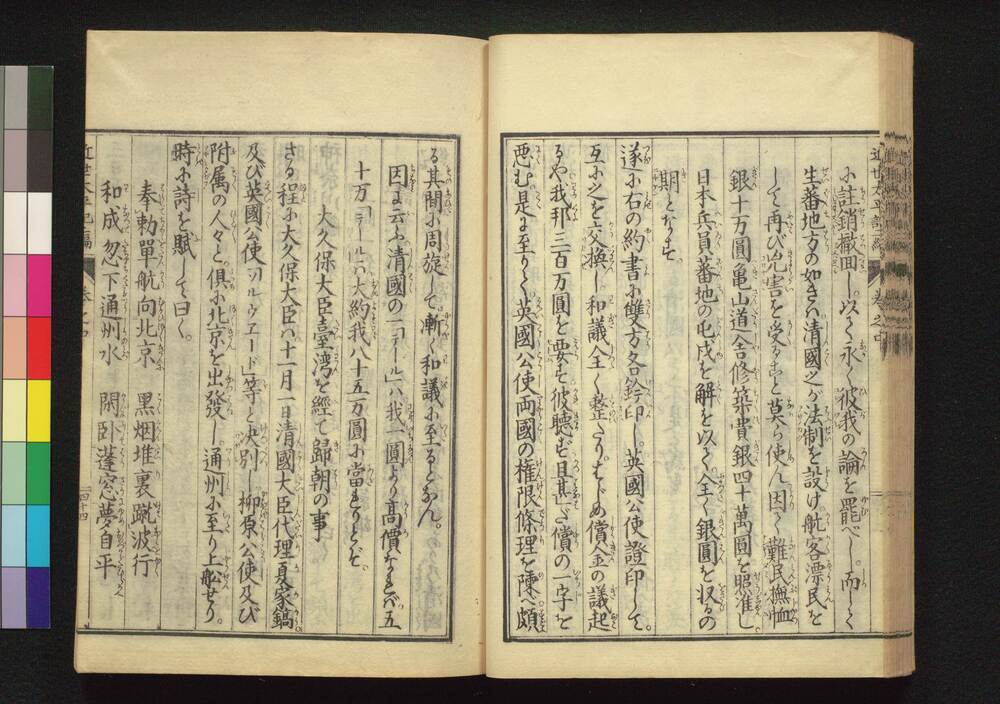 に註銷撤回し。以て永く彼我の論を罷べし。而して
生蕃地方の如きハ清國之が法制を設け航客漂民を
して再び兇害を受ること莫ら使ん因て難民撫恤
銀十万圓亀山道舎修築費銀四十萬圓を照准し。
日本兵員蕃地の屯戍を解を以て。全く銀圓を収るの
期となす。
遂に右の約書に雙方各鈐印し。英國公使證印して。
互に之を交換し和議全く整たり。はじめ償金の議起
るや我邦三百万圓を要す彼聴ず且其
償の一字を
悪む是に至りて。英國公使両國の権限條理を陳べ頗
る其間に周旋して。漸く和議に至るとなん。
因に云ふ清國の一「テール」ハ我一圓より高價なれバ五
十万「テール」ハ大約我八十五万圓に當れりとぞ。
大久保大臣臺湾を經て歸朝の事
さる程に大久保大臣ハ十一月一日清國大臣代理夏家鎬
及び英國公使「ウルウエード」等と决別し柳原公使及び
附属の人々と俱に北京を出發し。通州に至り上舩せり。
時に詩を賦して曰く。
奉勅單航向北京 黒烟堆裏蹴波行
和成忽下通州水 閑卧蓬窓夢自平
近世太平記二編
巻之中
四十四